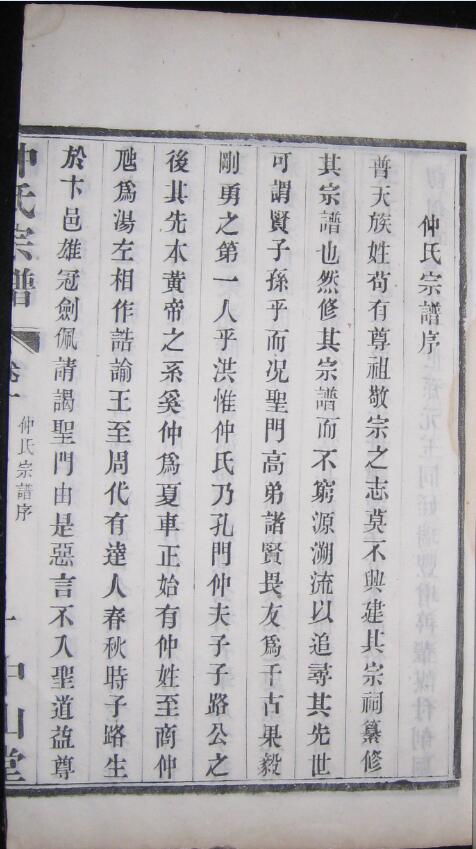 仲氏宗譜序
普天族姓苟有尊祖敬宗之志莫不興建其宗祠纂修
其宗譜也然修其宗譜而不窮源溯流以追尋其先世
可謂賢子孫乎而况聖門高弟諸賢畏友爲千古果毅
剛勇之第一人乎洪惟仲氏乃孔門仲夫子子路公之
後其先本黃帝之系奚仲爲夏車正始有仲姓至商仲
虺爲湯左相作誥諭王至周代有達人春秋時子路生
於卞邑雄冠劍佩請謁聖門由是惡言不入聖道益尊
仲氏宗譜
卷一
仲氏宗譜序
一
中山堂